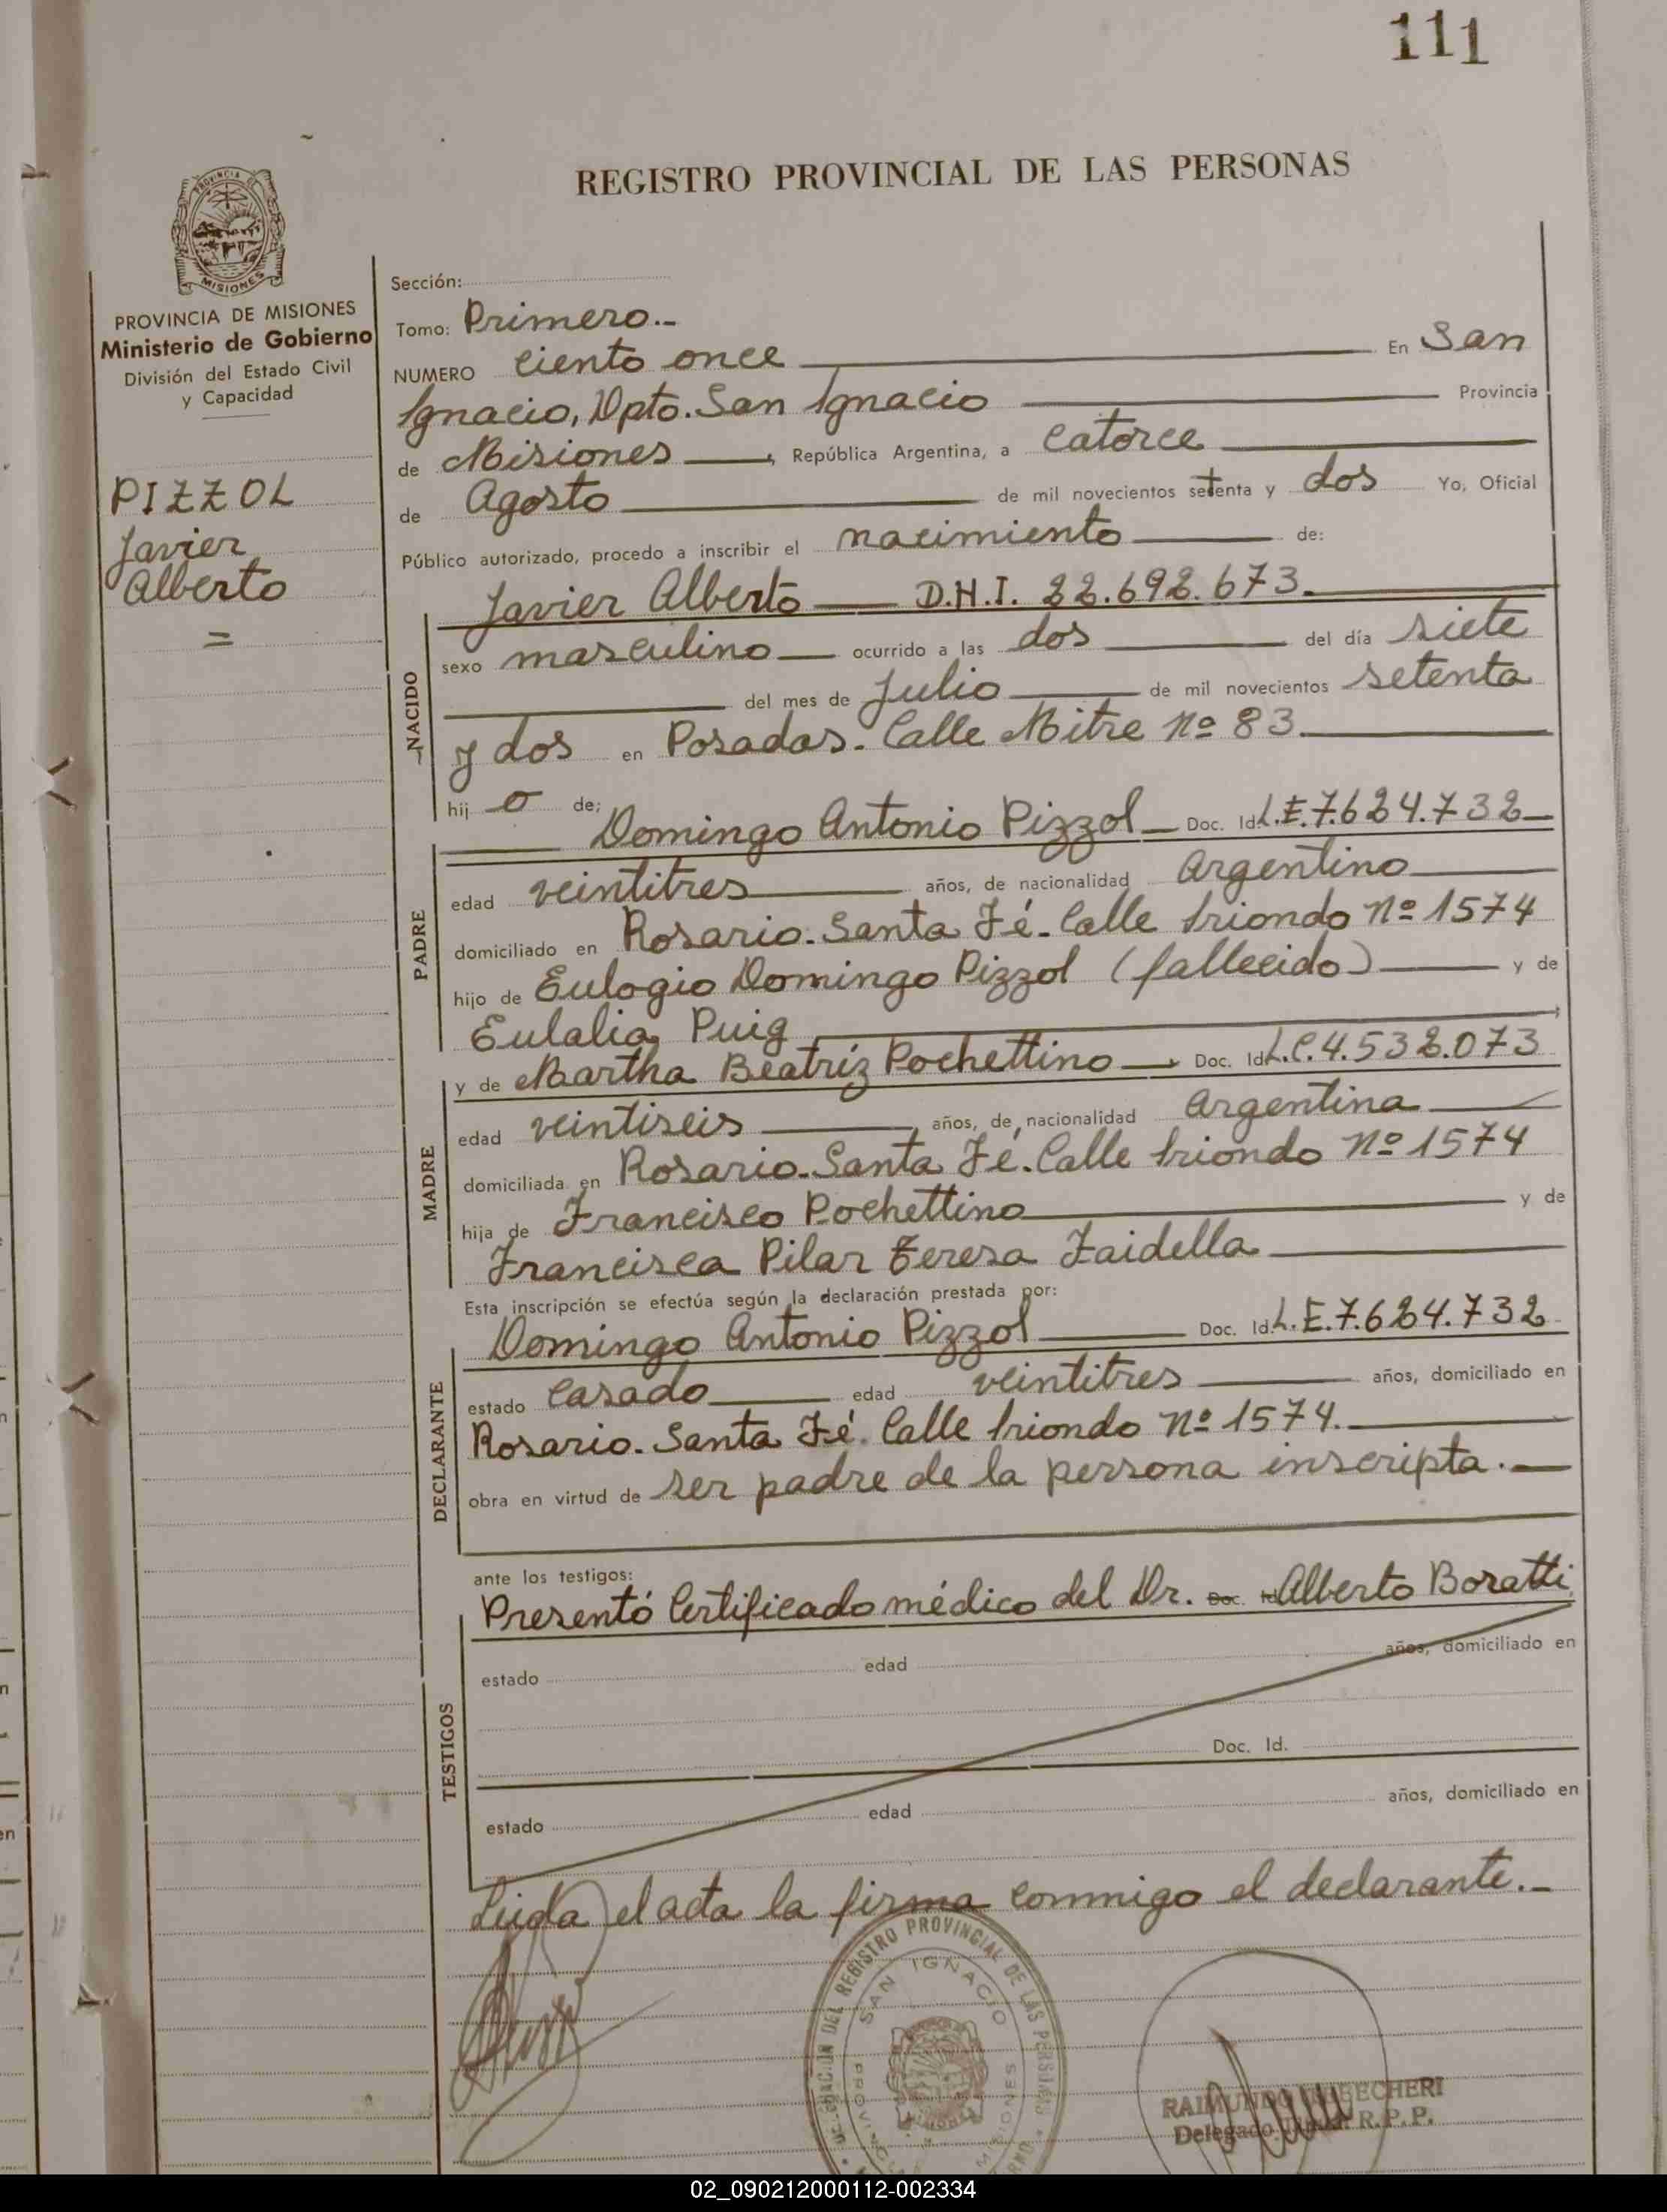 111
REGISTRO PROVINCIAL DE LAS PERSONAS
PROVINCIA DE
MISIONES
PROVINCIA DE MISIONES
Ministerio de Gobierno
División del Estado Civil
y Capacidad
PIZZOL
Javier
Alberto
=
Sección:
Tomo: Primero.-
NUMERO ciento once En San
Ignacio, Dpto. San Ignacio Provincia
de Misiones, República Argentina, a catorce
de Agosto de mil novecientos setenta y dos Yo, Oficial
Público autorizado, procedo a inscribir el nacimiento de:
Javier Alberto D.N.I. 22.692.673.
NACIDO
sexo masculino ocurrido a las dos del día siete
del mes de Julio de mil novecientos setenta
y dos en Posadas. Calle Mitre nº 83.
hij o de;
Domingo Antonio Pizzol Doc. Id. L.E.7.624.732
PADRE
edad veintitres años, de nacionalidad Argentino
domiciliado en Rosario. Santa Fé. Calle Iriondo nº 1574
hijo de Eulogio Domingo Pizzol (fallecido) y de
Eulalia Puig
y de Martha Beatríz Pochettino Doc. Id. L.C.4.532.073
MADRE
edad veintiseis años, de nacionalidad Argentina
domiciliada en Rosario. Santa Fé. Calle Iriondo nº 1574
hija de Francisco Pochettino y de
Francisca Pilar Teresa Zaidella
Esta inscripción se efectúa según la declaración prestada por:
Domingo Antonio Pizzol Doc. Id. L.E.7.624.732
DECLARANTE
estado casado edad veintitres años, domiciliado en
Rosario. Santa Fé. Calle Iriondo nº 1574.
obra en virtud de ser padre de la persona inscripta.
ante los testigos:
Presentó Certificado médico del Dr. Doc. Id. Alberto Boratti
TESTIGOS
estado edad años, domiciliado en
Doc. Id.
estado edad años, domiciliado en
Leida el acta la firma conmigo el declarante.-
DELEGACION DEL REGISTRO PROVINCIAL DE LAS PERSONAS
SAN IGNACIO
MISIONES
RAIMUNDO
Delegado R.P.P.
02_090212000112-002334